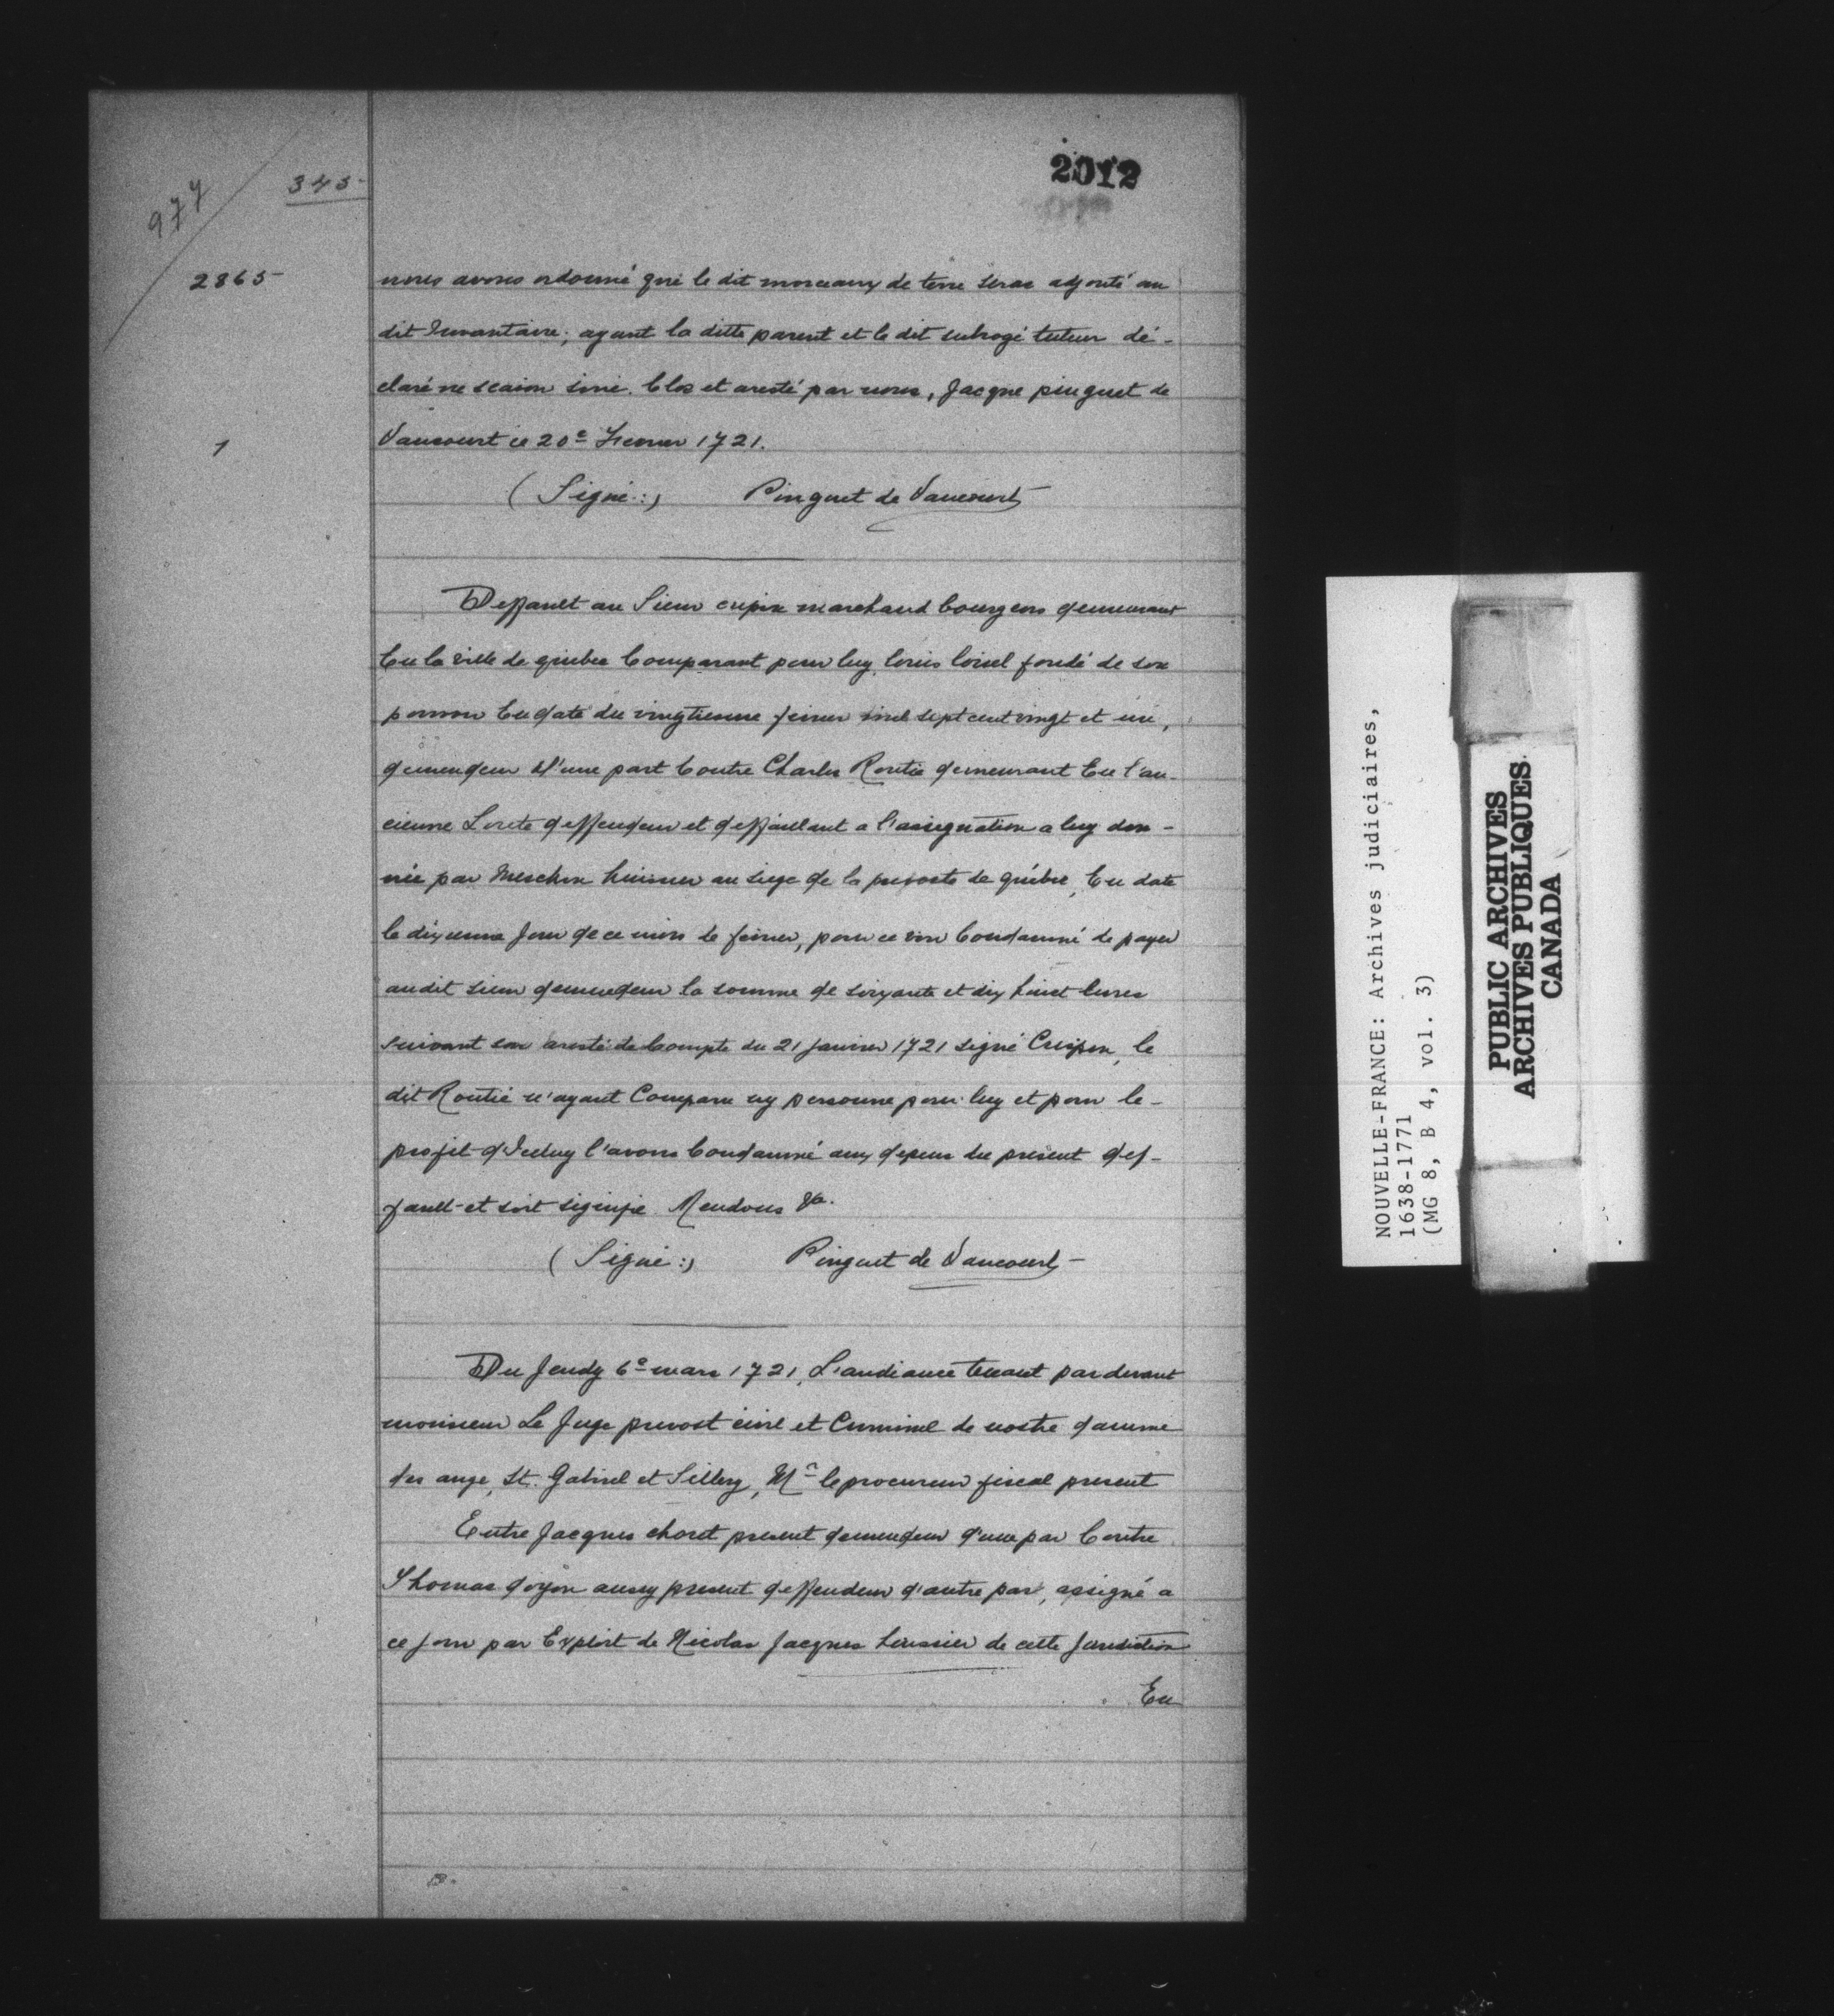 2012
977
345
2865
nous avons ordonné que le dit morceaux de terre serac adjouté au
dit Invantaire; ayant la ditte parent et le dit subrogé tuteur dé-
claré ne scaion sine. Clos et aresté par nous, Jacque pinguet de
Vaucourt ce 20e Fevrier 1721.
1
(Signé:) Pinguet de Vaucourt
Deffault au Sieur crepin marchand bourgeois demeurant
En la ville de quebec Comparant pour luy louis loisel fondé de son
pouvoir En date du vingtiesme fevrier mil sept cent vingt et un,
demendeur d'une part Contre Charles Routié demeurant En l'an-
cienne Lorete deffendeur et deffaillant a l'assignation a luy don-
née par Meschin huissier au siege de la prevosté de québec, En date
le dixiesme Jour de ce mois de fevrier, pour ce voir Condamné de payer
audit sieur demendeur la somme de soixante et dix huict livres
suivant son aresté de Compte du 21 Janvier 1721 signé Crespin, le
dit Routié n'ayant Comparu ny personne pour luy et pour le-
profit d'Iceluy l'avons Condamné aux depens du présent def-
fault et soit signifié Mendons &a.
(Signé:) Pinguet de Vaucourt
Du Jeudy 6e mars 1721, L'audiance tenant par devant
monsieur Le Juge prevost civil et Criminel de nostre damme
des ange, St. Gabriel et Sillery, Mr le procureur fiscal present
Entre Jacques choret present demendeur d'une par Contre
Thomas doyon aussy present deffendeur d'autre par, assigné a
ce jour par Exploit de Nicolas Jacques huissier de cette Juridiction
En
B.
NOUVELLE-FRANCE: Archives judiciaires,
1638-1771
(MG 8, B 4, vol. 3)
PUBLIC ARCHIVES
ARCHIVES PUBLIQUES
CANADA